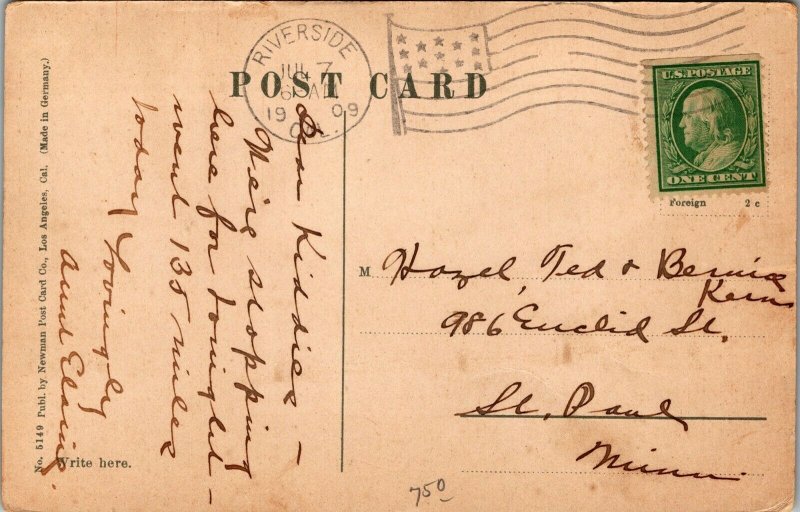 RIVERSIDE
JUL 7
6 AM
19 09
CAL.
POST CARD
U.S. POSTAGE
ONE CENT
Foreign 2 c
No. 5149 Publ. by Newman Post Card Co., Los Angeles, Cal. (Made in Germany.)
Write here.
Dear Kiddies –
We're stopping
here for tonight –
went 135 miles
today
Lovingly
Aunt
M Hazel, Ted & Bernice
Kern
986 Euclid St.
St. Paul
Minn.
750